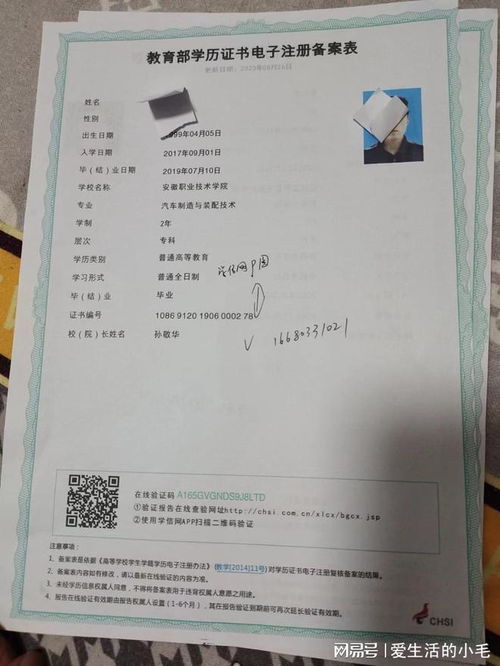 教育部学历证书电子注册备案表
更新日期：2023年08月26日
姓名
性别
出生日期 1999年04月05日
入学日期 2017年09月01日
毕（结）业日期 2019年07月10日
学校名称 安徽职业技术学院
专业 汽车制造与装配技术
学制 2年
层次 专科
学历类别 普通高等教育
学习形式 普通全日制
学信网
毕（结）业 毕业
证书编号 1086 9120 1906 0002 78
校（院）长姓名 孙敬华
V 16680331021
在线验证码 A165GVGNDS9J8LTD
①验证报告在线查验网址http://chsi.com.cn/xlcx/bgcx.jsp
②使用学信网APP扫描二维码验证
注意事项：
1、备案表是依据《高等学校学生学籍学历电子注册办法》(教学[2014]11号)对学历证书电子注册复核备案的结果。
2、备案表内容如有修改，请以最新在线验证的内容为准。
3、未经学历信息权属人同意，不得将备案表用于违背权属人意愿之用途。
4、报告在线验证有效期由报告权属人设置（1-6个月），其在报告验证到期前可再次延长验证有效期。
CHSI
网易号 | 爱生活的小毛